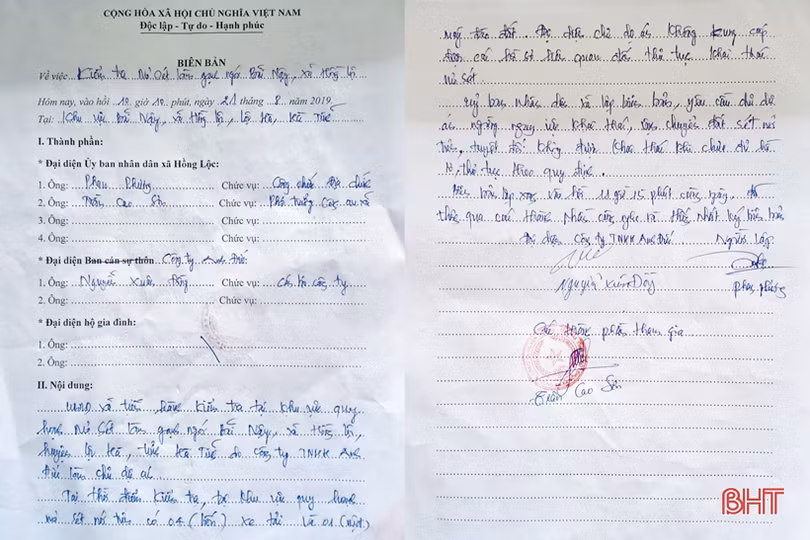 CỘNG HÒA XÃ HỘI CHỦ NGHĨA VIỆT NAM
Độc lập - Tự do - Hạnh phúc
BIÊN BẢN
Về việc Kiểm tra Mỏ sét làm gạch ngói Bắc Nậy, xã Hồng Lộc
Hôm nay, vào hồi 10 giờ 10 phút, ngày 21 tháng 8 năm 2019
Tại: Khu vực Bắc Nậy, xã Hồng Lộc, Lộc Hà, Hà Tĩnh
I. Thành phần:
* Đại diện Ủy ban nhân dân xã Hồng Lộc:
1. Ông: Phan Phương Chức vụ: Công chức Địa chính
2. Ông: Trần Cao Sơn Chức vụ: Phó trưởng công an xã
3. Ông: Chức vụ:
4. Ông: Chức vụ:
* Đại diện Ban cán sự thôn Công ty Anh Đức:
1. Ông: Nguyễn Xuân Đồng Chức vụ: Cán bộ công ty
2. Ông: Chức vụ:
* Đại diện hộ gia đình:
1. Ông:
2. Ông:
II. Nội dung:
UBND xã tiến hành kiểm tra tại khu vực quy
hoạch Mỏ sét làm gạch ngói Bắc Nậy, xã Hồng Lộc,
huyện Lộc Hà, tỉnh Hà Tĩnh do công ty TNHH Anh
Đức làm chủ dự án.
Tại thời điểm kiểm tra, tại khu vực quy hoạch
mỏ sét nói trên có 04 (bốn) xe tải và 01 (một)
máy đào đất. Đại diện chủ dự án không cung cấp
được các hồ sơ liên quan đến thủ tục khai thác
mỏ sét.
Uỷ ban nhân dân xã lập biên bản, yêu cầu chủ dự
án ngừng ngay việc khai thác, vận chuyển đất sét nói
trên, tuyệt đối không được khai thác khi chưa đủ hồ
sơ, thủ tục theo quy định.
Biên bản lập xong vào hồi 11 giờ 15 phút cùng ngày, đã
thông qua các thành phần cùng nghe và thống nhất ký biên bản
Đại diện Công ty TNHH Anh Đức Người lập
Nguyễn Xuân Đồng Phan Phương
Các thành phần tham gia
Trần Cao Sơn
BHT